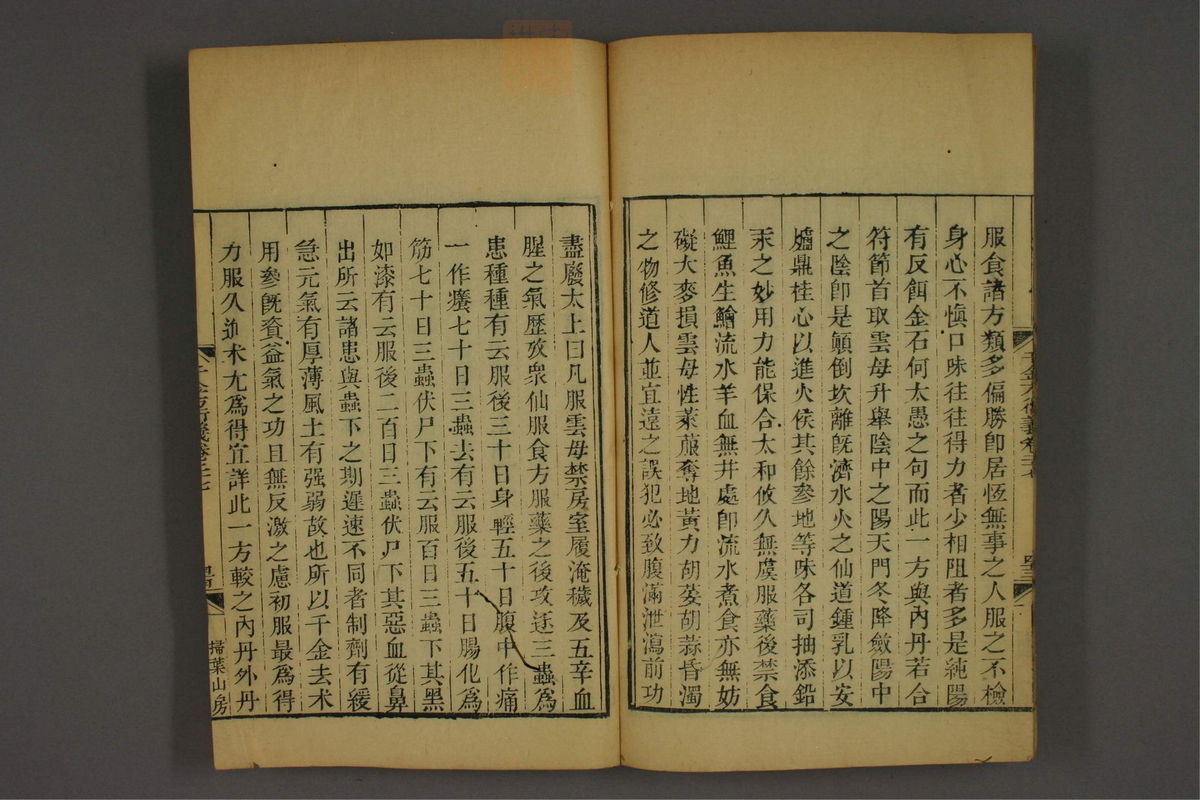 服食諸方類多偏勝卽居恆無事之人服之不檢
身心不愼口味往往得力者少相阻者多是純陽
有反餌金石何太愚之句而此一方與內丹若合
符節首取雲母升舉陰中之陽天門冬降斂陽中
之陰卽是顚倒坎離旣濟水火之仙道鍾乳以安
爐鼎桂心以進火侯其餘參地等味各司抽添鉛
汞之妙用力能保合太和攸久無虞服藥後禁食
鯉魚生鱠流水羊血無井處卽流水煮食亦無妨
礙大麥損雲母性萊菔奪地黃力胡荽胡蒜昏濁
之物修道人並宜遠之誤犯必致腹滿泄瀉前功
盡廢太上曰凡服雲母禁房室履淹穢及五辛血
腥之氣歷攷衆仙服食方服藥之後攻逐三蟲爲
患種種有云服後三十日身輕五十日腹中作痛
一作癢七十日三蟲去有云服後五十日腸化爲
筋七十日三蟲伏尸下有云服百日三蟲下其黑
如漆有云服後二百日三蟲伏尸下其惡血從鼻
出所云諸患與蟲下之期遲速不同者制劑有緩
急元氣有厚薄風土有强弱故也所以千金去术
用參旣資益氣之功且無反激之慮初服最爲得
力服久進术尤爲得宜詳此一方較之內丹外丹
掃葉山房